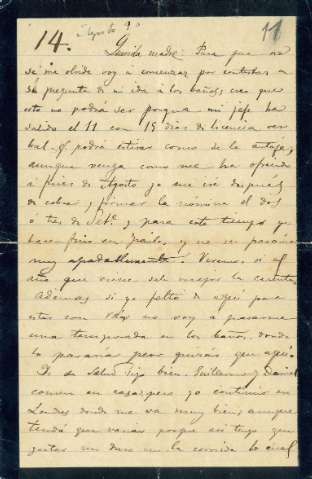 Agosto 90
11
14.
Querida madre: Para que no
se me olvide voy a comenzar por contestar a
su pregunta de mi ida á los baños; creo que
esto no podrá ser porque mi jefe ha
salido el 11 con 15 dias de licencia ver
bal q. podrá estirar como de la
aunque venga como me ha ofrecido
á fines de Agosto yo me iré después
de cobrar y firmar la nómina el dos
ó tres de Set.e y para este tiempo ya
hace frio en y no se pasaria
muy agradablemente. Veremos si el
año que viene sale mejor la cuenta.
Ademas si yo falto de aqui para
estar con Vds no voy a pasarme
una temporada en los baños, donde
lo pasaria peor quizás que aquí.
De salud sigo bien. Guillermo y Daniel
comen en casa; pero yo continúo en
Londres donde me va muy bien; aunque
tendré que variar porque asi tengo que
gastar un duro en la comida lo cual